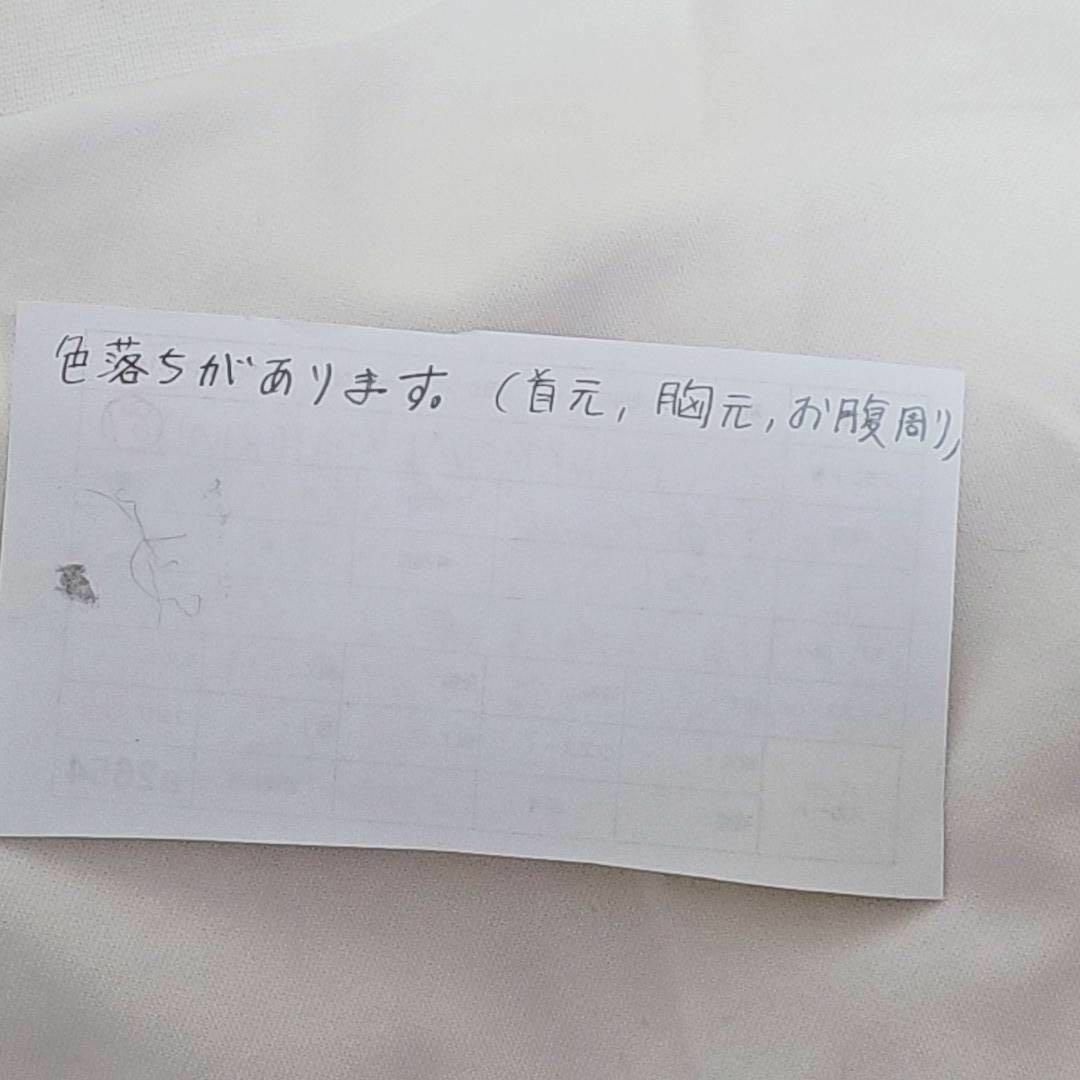 色落ちがあります。(首元,胸元,お腹周り)